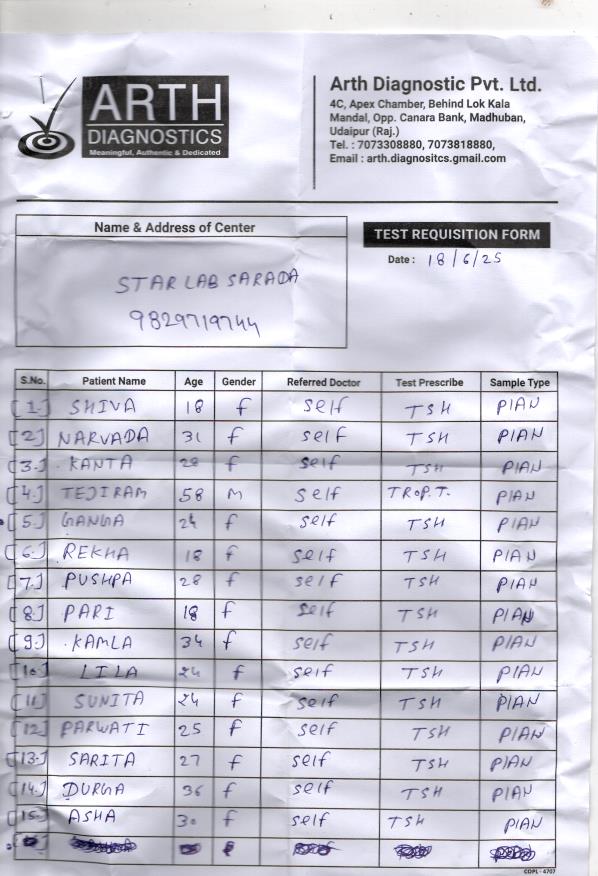 ARTH
DIAGNOSTICS
Meaningful, Authentic & Dedicated
Arth Diagnostic Pvt. Ltd.
4C, Apex Chamber, Behind Lok Kala
Mandal, Opp. Canara Bank, Madhuban,
Udaipur (Raj.)
Tel. : 7073308880, 7073818880,
Email : arth.diagnositcs.gmail.com
Name & Address of Center
STAR LAB SARADA
9829719744
TEST REQUISITION FORM
Date : 18/6/25
S.No. Patient Name Age Gender Referred Doctor Test Prescribe Sample Type
[1.] SHIVA 18 f self TSH PIAN
[2.] NARVADA 31 f self TSH PIAN
[3.] KANTA 28 f self TSH PIAN
[4.] TEJIRAM 58 M self TROP.T. PIAN
[5.] GANGA 24 f self TSH PIAN
[6.] REKHA 18 f self TSH PIAN
[7.] PUSHPA 28 f self TSH PIAN
[8.] PARI 18 f self TSH PIAN
[9.] KAMLA 34 f self TSH PIAN
[10.] LILA 24 f self TSH PIAN
[11.] SUNITA 24 f self TSH PIAN
[12.] PARWATI 25 f self TSH PIAN
[13.] SARITA 27 f self TSH PIAN
[14.] DURGA 36 f self TSH PIAN
[15.] ASHA 30 f self TSH PIAN
COPL - 4707